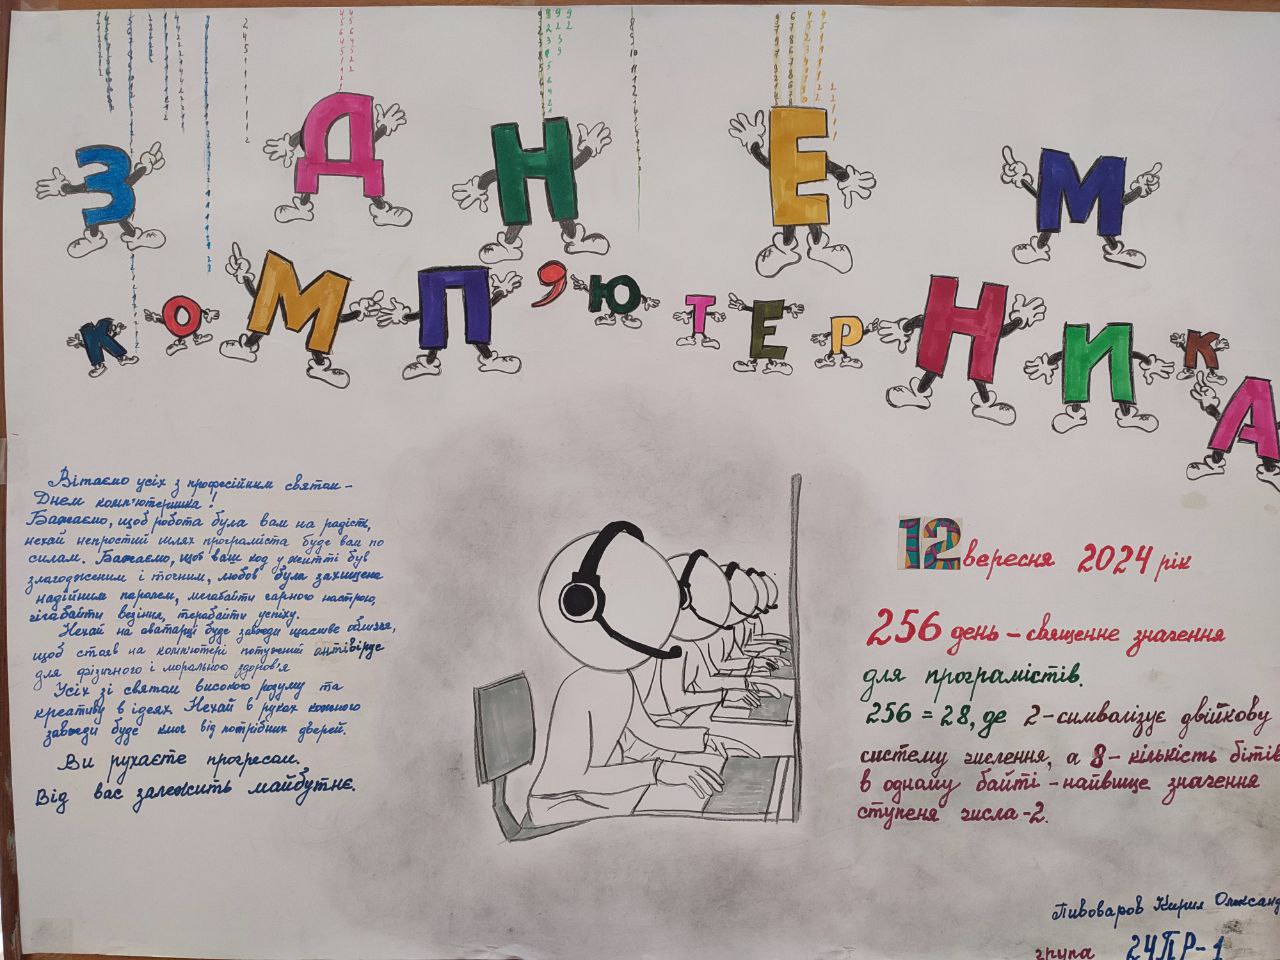 З ДНЕМ
КОМП'ЮТЕРНИКА
Вітаємо усіх з професійним святом -
Днем комп'ютерника!
Бажаємо, щоб робота була вам на радість,
нехай непростий шлях програміста буде вам по
силам. Бажаємо, щоб ваш код у житті був
злагодженим і точним, любов була захищена
надійним паролем, мегабайти гарного настрою,
гігабайти везіння, терабайти успіху.
Нехай на аватарці буде завжди щасливе обличчя,
щоб стояв на комп'ютері потужний антивірус
для фізичного і морального здоров'я
Усіх зі святом високого розуму та
креативу в ідеях. Нехай в руках кожного
завжди буде ключ від потрібних дверей.
Ви рухаєте прогресом.
Від вас залежить майбутнє.
12 вересня 2024 рік
256 день - священне значення
для програмістів.
256 = 28, де 2 - символізує двійкову
систему числення, а 8 - кількість бітів
в одному байті - найвище значення
ступеня числа - 2.
Пивоваров Кирил Олександ
група 24ПР-1